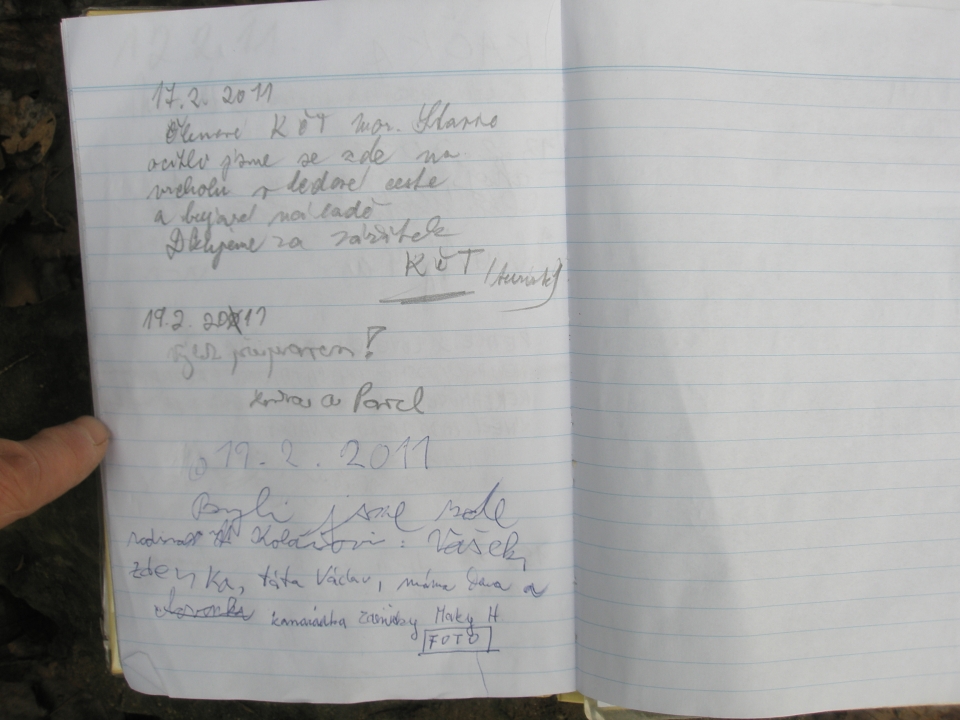 17.2. 2011
Členové KČT mor.
ocitli jsme se zde na
vrcholu v ledové cestě
a bujaré náladě
Děkujeme za zážitek
KČT (turisté)
19.2. 2011
a Pavel
19.2.2011
Byli jsme zde
Kolářovi: Vašek,
Zdenka, táta Václav, máma a
kamarádka Haky H
FOTO